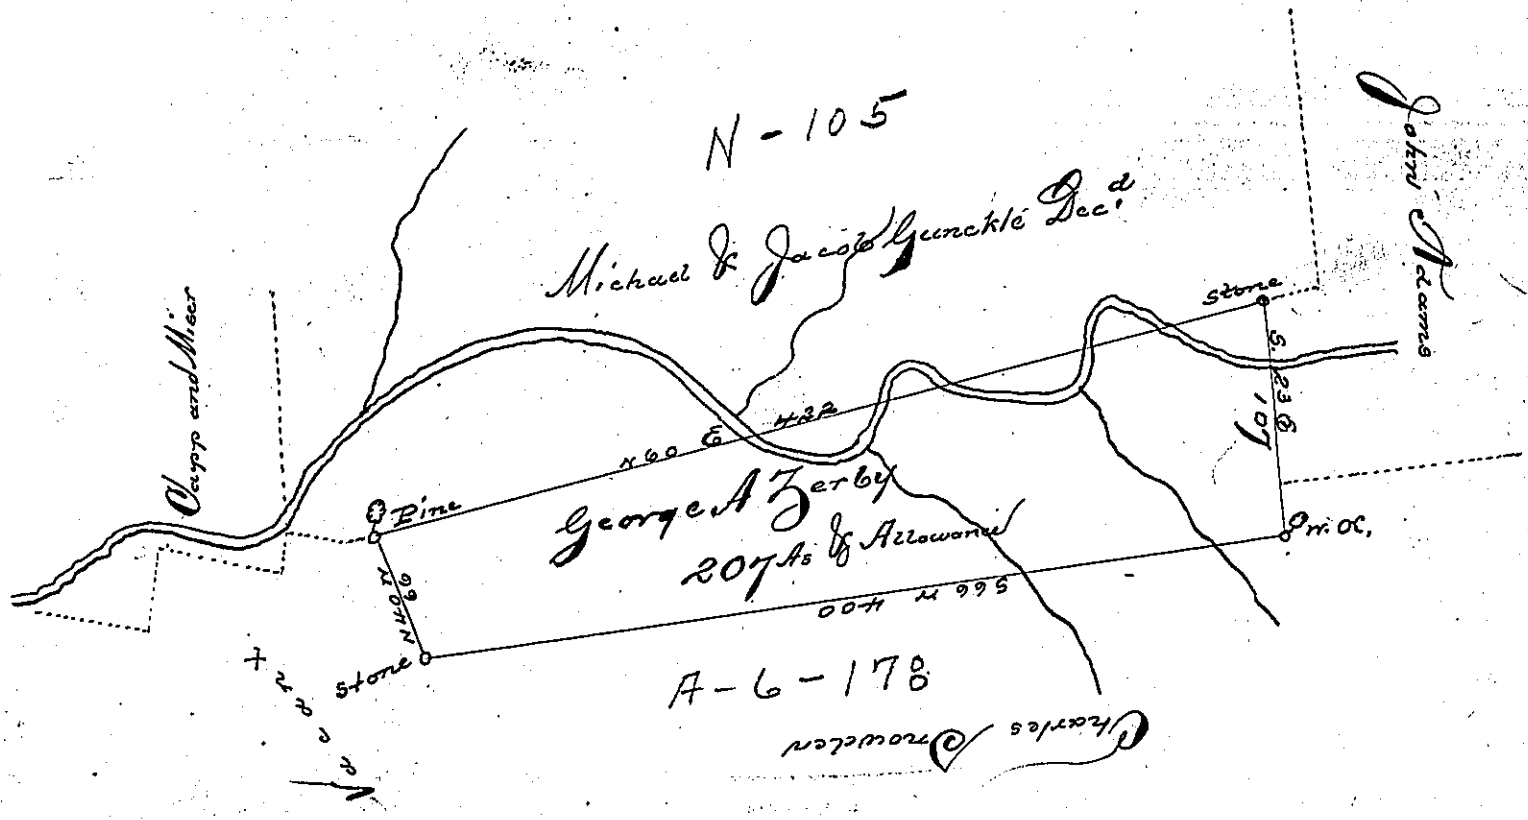 N - 105
Michael & Jacob Gunckle Dec'd
John Adams
Capp and Miser
Stone
S. 23 E
107
N 60 E 432
Pine
George A Zerby
207 As & Allowance
W. O.
N 40 W
66
S 66 W 400
Stone
A - 6 - 178
Charles Snowden